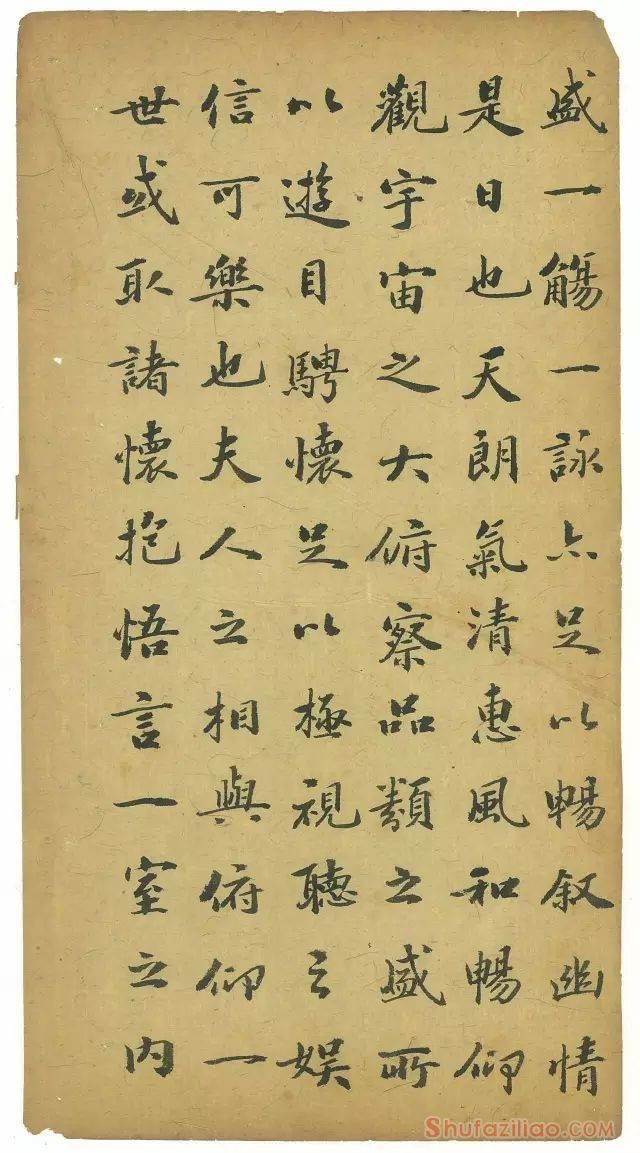 盛一觴一詠亦足以暢叙幽情
是日也天朗氣清惠風和暢仰
觀宇宙之大俯察品類之盛所
以遊目騁懷足以極視聽之娱
信可樂也夫人之相與俯仰一
世或取諸懷抱悟言一室之内
Shufaziliao.com